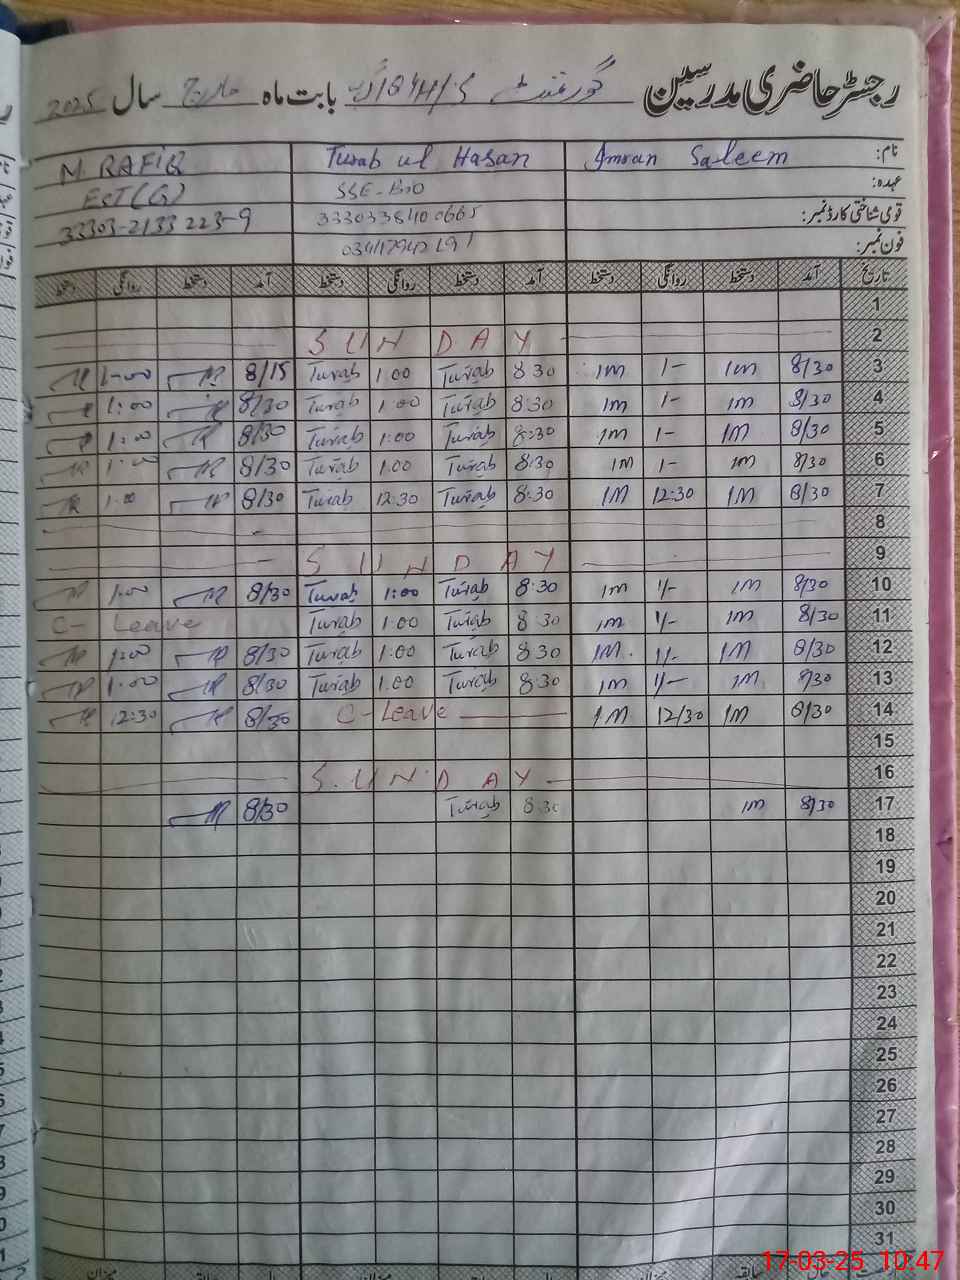 رجسٹر حاضری مدرسین گورنمنٹ بابت ماہ مارچ سال 2025
نام: Imran Saleem Turab ul Hasan M. RAFIQ
عہدہ: SSE-BIO EST(G)
قومی شناختی کارڈ نمبر: 33303-2133223-9
فون نمبر:
تاریخ آمد دستخط روانگی دستخط آمد دستخط روانگی دستخط آمد دستخط روانگی دستخط
1
2 SUNDAY
3 8/30 IM 1- IM 8 30 Turab 1.00 Turab 8/15 1-00
4 8/30 IM 1- IM 8:30 Turab 1:00 Turab 8/30 1:00
5 8/30 IM 1- IM 8:30 Turab 1:00 Turab 8/30 1:00
6 8/30 IM 1- IM 8:30 Turab 1.00 Turab 8/30 1:00
7 8/30 IM 12:30 IM 8:30 Turab 12:30 Turab 8/30 1.00
8
9 SUNDAY
10 8/30 IM 1/- IM 8:30 Turab 1:00 Turab 8/30 1:00
11 8/30 IM 1/- IM 8:30 Turab 1:00 Turab C- Leave
12 8/30 IM 1/- IM 8:30 Turab 1:00 Turab 8/30 1:00
13 8/30 IM 1/- IM 8:30 Turab 1.00 Turab 8/30 1:00
14 8/30 IM 12/30 IM C-Leave 8/30 12:30
15
16 SUNDAY
17 8/30 IM 8:30 Turab 8/30
18
19
20
21
22
23
24
25
26
27
28
29
30
31
17-03-25 10:47